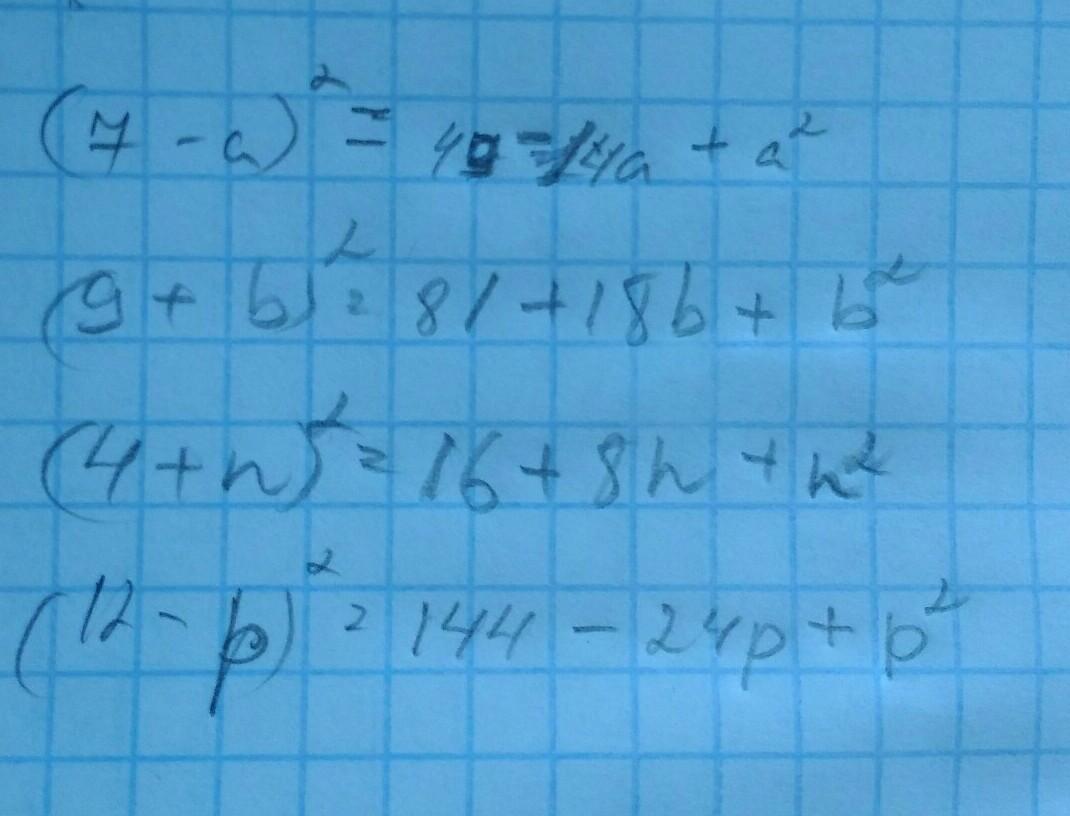 (7 - a)² = 49 - 14a + a²
(9 + b)² = 81 + 18b + b²
(4 + n)² = 16 + 8n + n²
(12 - p)² = 144 - 24p + p²